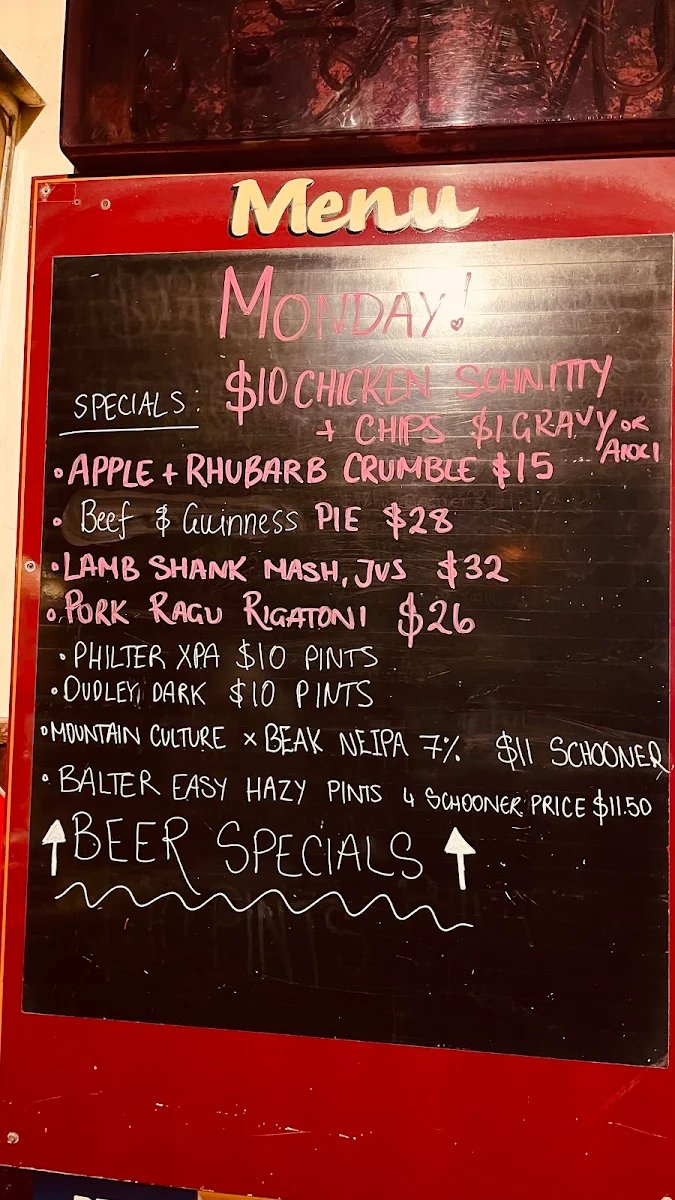 Menu
MONDAY!
SPECIALS: $10 CHICKEN SCHNITTY
+ CHIPS $1 GRAVY OR
AIOLI
• APPLE + RHUBARB CRUMBLE $15
• Beef & Guinness PIE $28
• LAMB SHANK MASH, JUS $32
• PORK RAGU RIGATONI $26
• PHILTER XPA $10 PINTS
• DUDLEY DARK $10 PINTS
• MOUNTAIN CULTURE x BEAK NEIPA 7% $11 SCHOONER
• BALTER EASY HAZY PINTS 4 SCHOONER PRICE $11.50
↑ BEER SPECIALS ↑